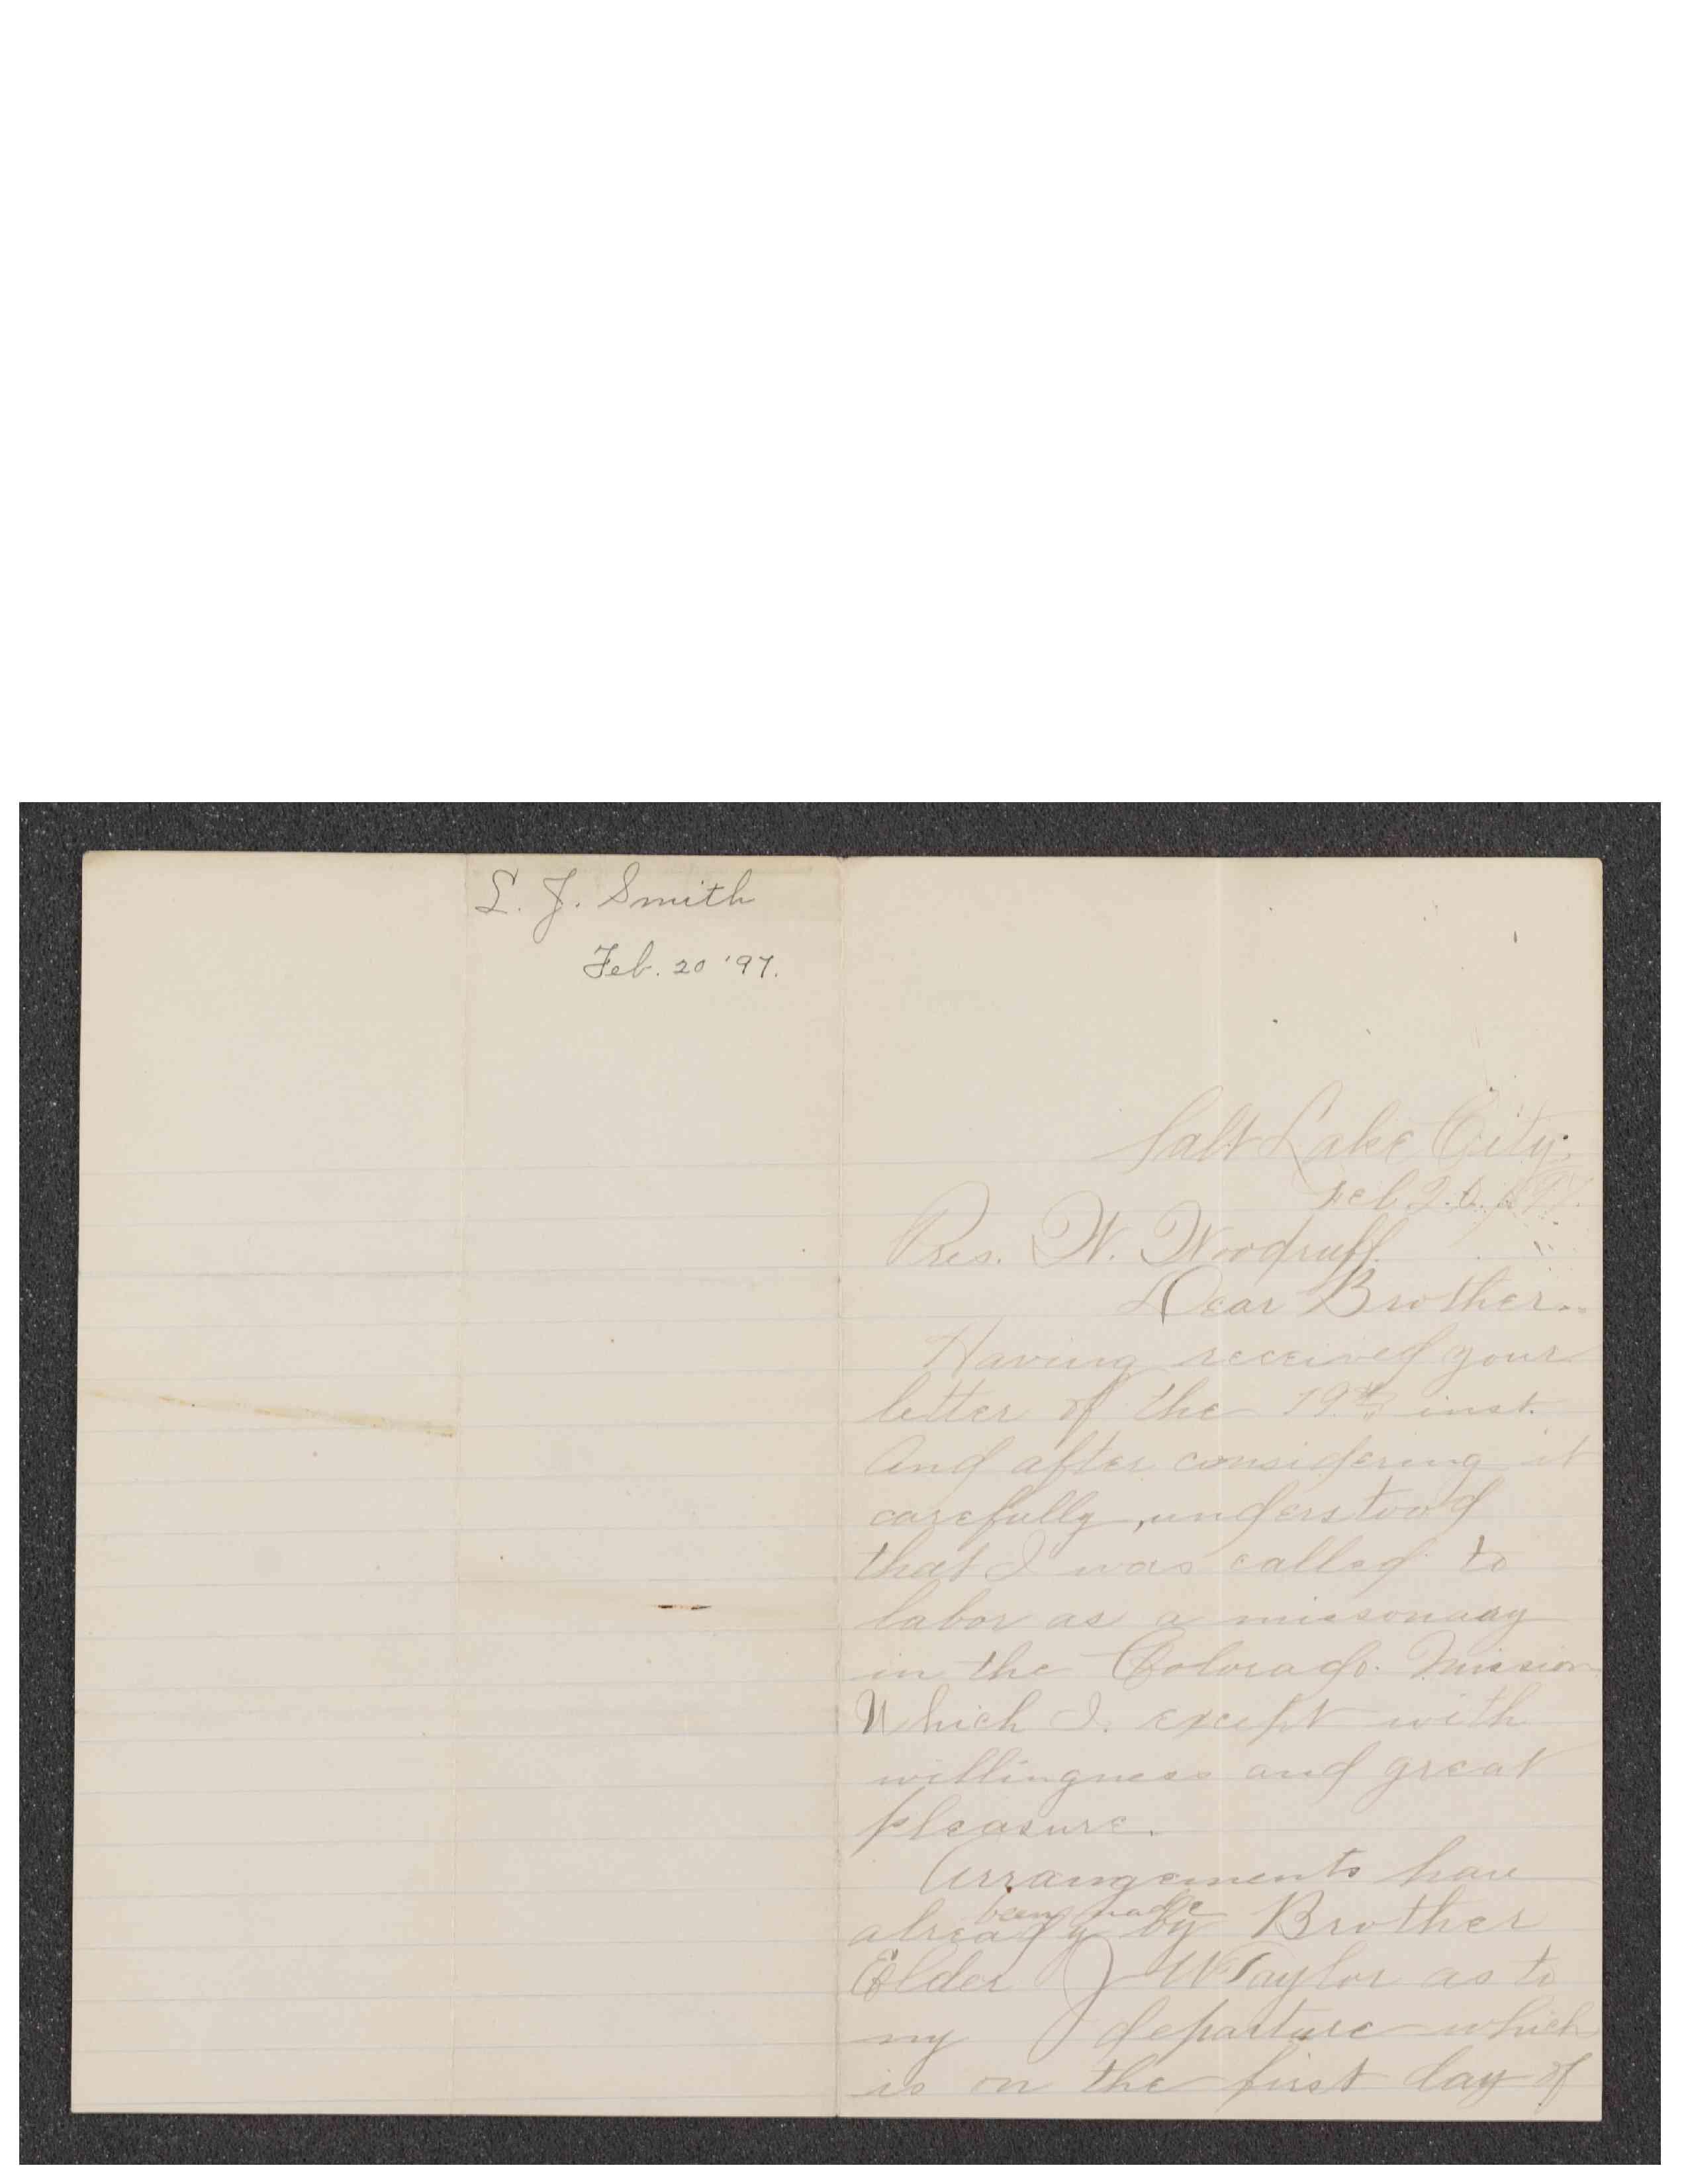 L. J. Smith
Feb. 20 '97.
Salt Lake City.
Feb 20. 1897.
Pres. W. Woodruff.
Dear Brother..
Having received your
letter of the 19th inst.
And after considering it
carefully, understood
that I was called to
labor as a missonary
in the Colorado. Mission
Which I. except with
willingness and great
pleasure.
Arrangements have
been made
already by Brother
Elder J W Taylor as to
my departure which
is on the first day of